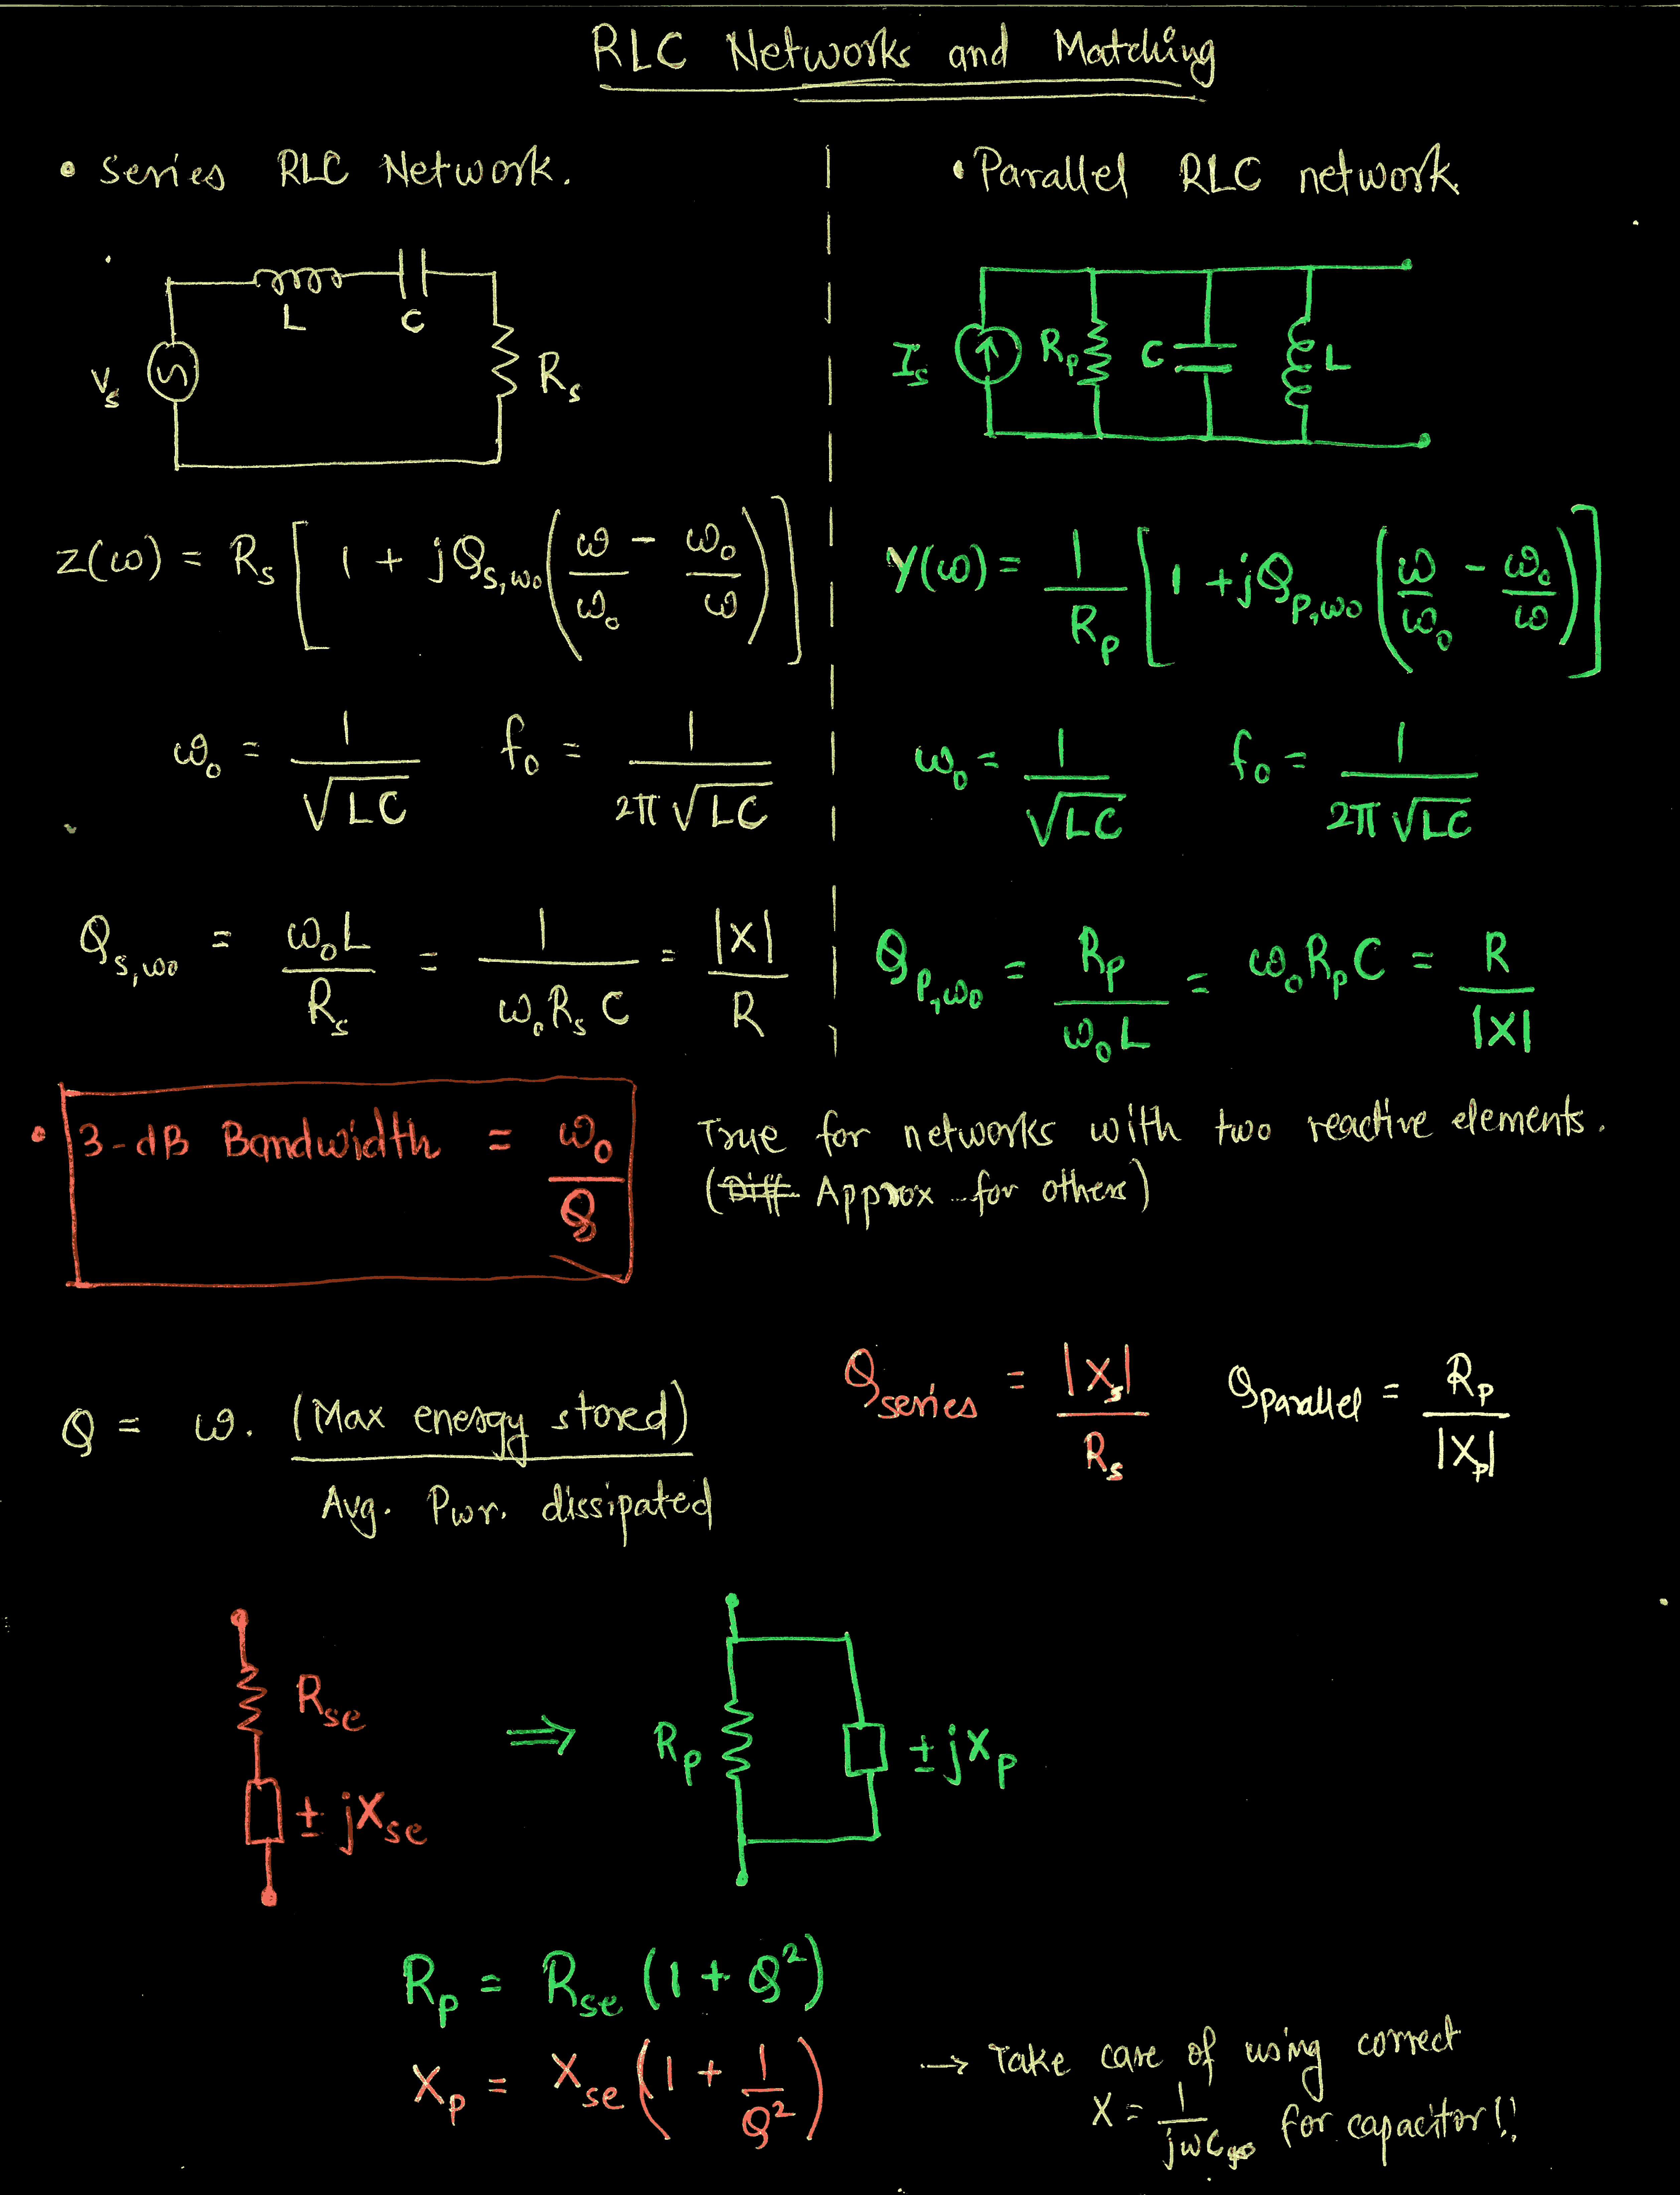 RLC Networks and Matching
• Series RLC Network.
L
C
V_s
R_s
z(ω) = R_s [ 1 + jQ_{s,ω0} ( ω/ω_0 - ω_0/ω ) ]
ω_0 = 1/√LC   f_0 = 1/2π√LC
Q_{s,ω0} = ω_0L/R_s = 1/ω_0R_sC = |X|/R
• Parallel RLC network
I_s
R_p
C
L
Y(ω) = 1/R_p [ 1 + jQ_{p,ω0} ( ω/ω_0 - ω_0/ω ) ]
ω_0 = 1/√LC   f_0 = 1/2π√LC
Q_{p,ω0} = R_p/ω_0L = ω_0R_pC = R/|X|
• 3-dB Bandwidth = ω_0/Q
True for networks with two reactive elements.
(Diff Approx for others)
Q = ω. (Max energy stored)/Avg. Pwr. dissipated
Q_series = |X_s|/R_s   Q_parallel = R_p/|X_p|
R_se
± jX_se
⇒
R_p
± jX_p
R_p = R_se (1 + Q²)
X_p = X_se (1 + 1/Q²)
→ Take care of using correct
X = 1/jωC for capacitor!!